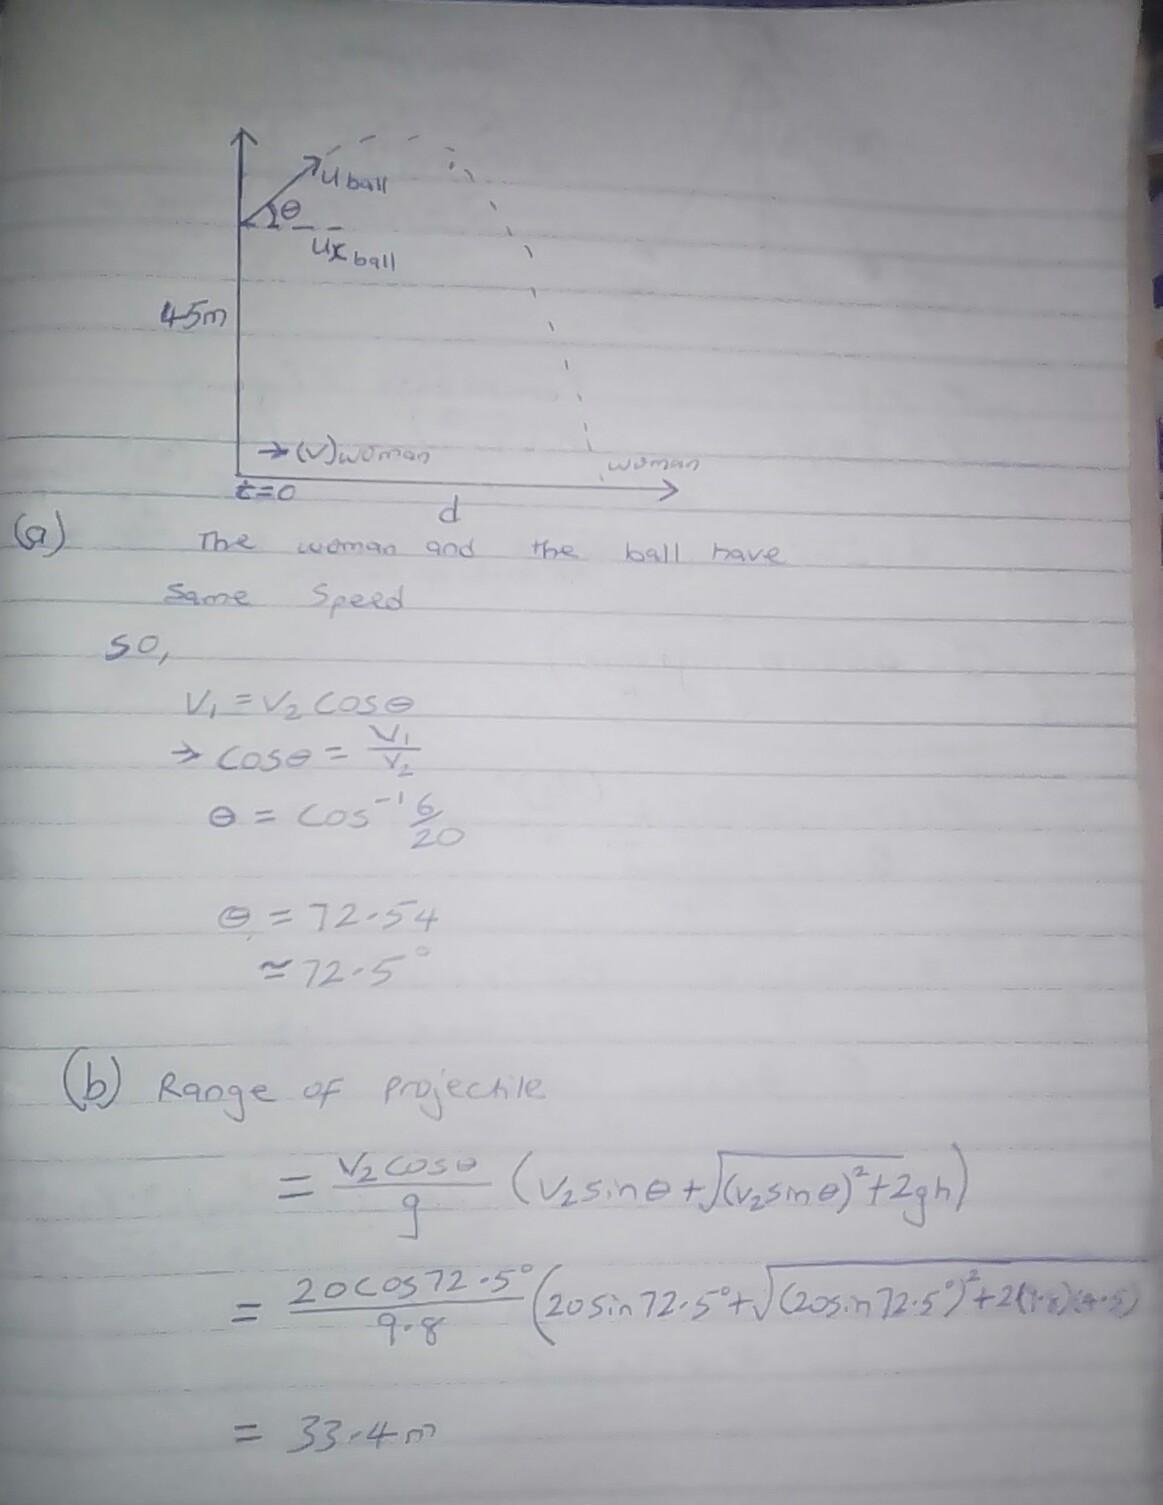 u ball
θ
ux ball
45m
→ (v) woman
woman
t=0
d
(a) The woman and the ball have
Same Speed
so,
V₁ = V₂ cosθ
→ cosθ = V₁/V₂
θ = cos⁻¹ 6/20
θ = 72.54
≃ 72.5°
(b) Range of Projectile
= V₂ cosθ/g (V₂sinθ + √(v₂sinθ)² + 2gh)
= 20cos72.5°/9.8 (20sin72.5° + √(20sin72.5°)² + 2(9.8)(45)
= 33.4m